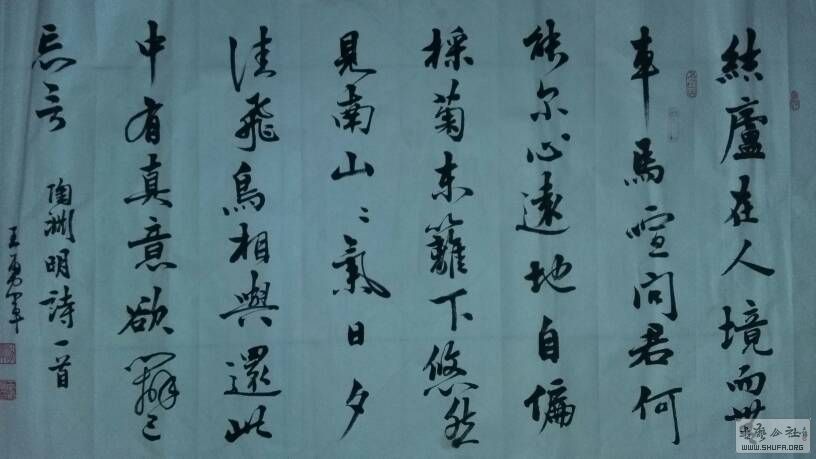 結廬在人境而無
車馬喧問君何
能尔心遠地自偏
採菊东籬下悠然
見南山〻氣日夕
佳飛鳥相與還此
中有真意欲辨已
忘言
陶渊明詩一首
王勇军
書法公社
WWW.SHUFA.ORG